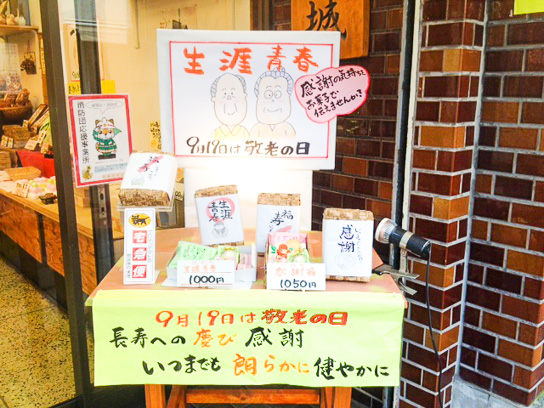 城
生涯青春
感謝の気持ちを
お菓子で
伝えませんか?
9月19日は敬老の日
消防団応援事業所
生涯
福寿
感謝
宅急便
1000円
1050円
9月19日は敬老の日
長寿への慶び 感謝
いつまでも 朗らかに 健やかに